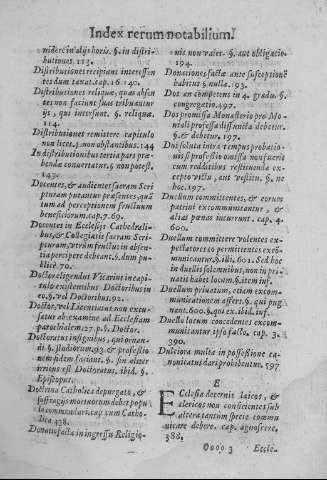 Index rerum notabilium.
nideri in alijs horis. §. in distri-
butiones. 113.
Distributiones recipiant interessen
tes dum taxat. cap. 16. 140.
Distributiones reliquæ, quas absen
tes non faciunt suas tribuantur
ijs, qui intersunt. §. reliquæ.
114.
Distributiones remittere capitulo
non licet. §. non obstantibus. 144
In distributionibus tertia pars præ-
benda conuertatur, & non potest.
143.
Docentes, & audientes sacram Scri
pturam putantur præsentes, quā
tum ad perceptionem fructuum
beneficiorum. cap. 7. 69.
Docentes in Ecclesijs Cathedrali-
bus, & Collegialis sacram Scri-
pturam, vtrum fructus in absen-
tia percipere debeant. §. dum pu
blicè. 70.
Doctor eligendus Vicarius in capi
tulo existentibus Doctoribus in
eo. §. vel Doctoribus. 92.
Doctor, vel Licentiatus non excu-
satur ab examine ad Ecclesiam
parochialem. 27. p. §. Doctor.
Doctoratus insignitus, qui ordinā
di. §. studiorum. 93. & professio
nem fidem faciant. §. sin alter
ius est Doctoratus, ibid. §.
Episcopus.
Doctrina Catholica de purgato, &
suffragijs mortuorum debet popu
lo commendari. cap. eum Catho-
lica. 438.
Donatio facta in ingressu Religio-
nis non valet. §. aut obligatio.
194.
Donationes factæ ante susceptionē
habitus §. nulla. 193.
Dos an competens in 4. gradu. §.
congregatio. 497.
Dos promissa Monasterio pro Mo-
niali professa disiuncta debetur.
§. & debetur. 197.
Dos soluta intra tempus probatio-
nis professio omissa non fuerit
cum redditibus restituenda ex-
cepto victu, aut vestitu. §. ne
hoc. 197.
Duellum committentes, & eorum
patrini excommunicantur, &
alias pœnas incurrunt. cap. 4.
600.
Duellum committere volentes ex-
pectatores eo permittentes excō-
municantur. §. illi. 601. Sed hoc
in duellis solemnibus, non in pri-
uatis habet locum. §. item inf.
Duellum priuatum, etiam excom-
municationem asserre. §. qui pug
nant. 600. §. qui ex. ibid. inf.
Duello locum concedentes excom-
municantur ipso facto. cap. 3.
390.
Dulciora multa in possessione ca-
nonicatus dari probentur. 597
E
Ecclesia decernit laicos, &
clericos non conficientes sub
altera tantum specie commu
nicare debere. cap. agnoscere,
388.
Oooo 3
Eccle-